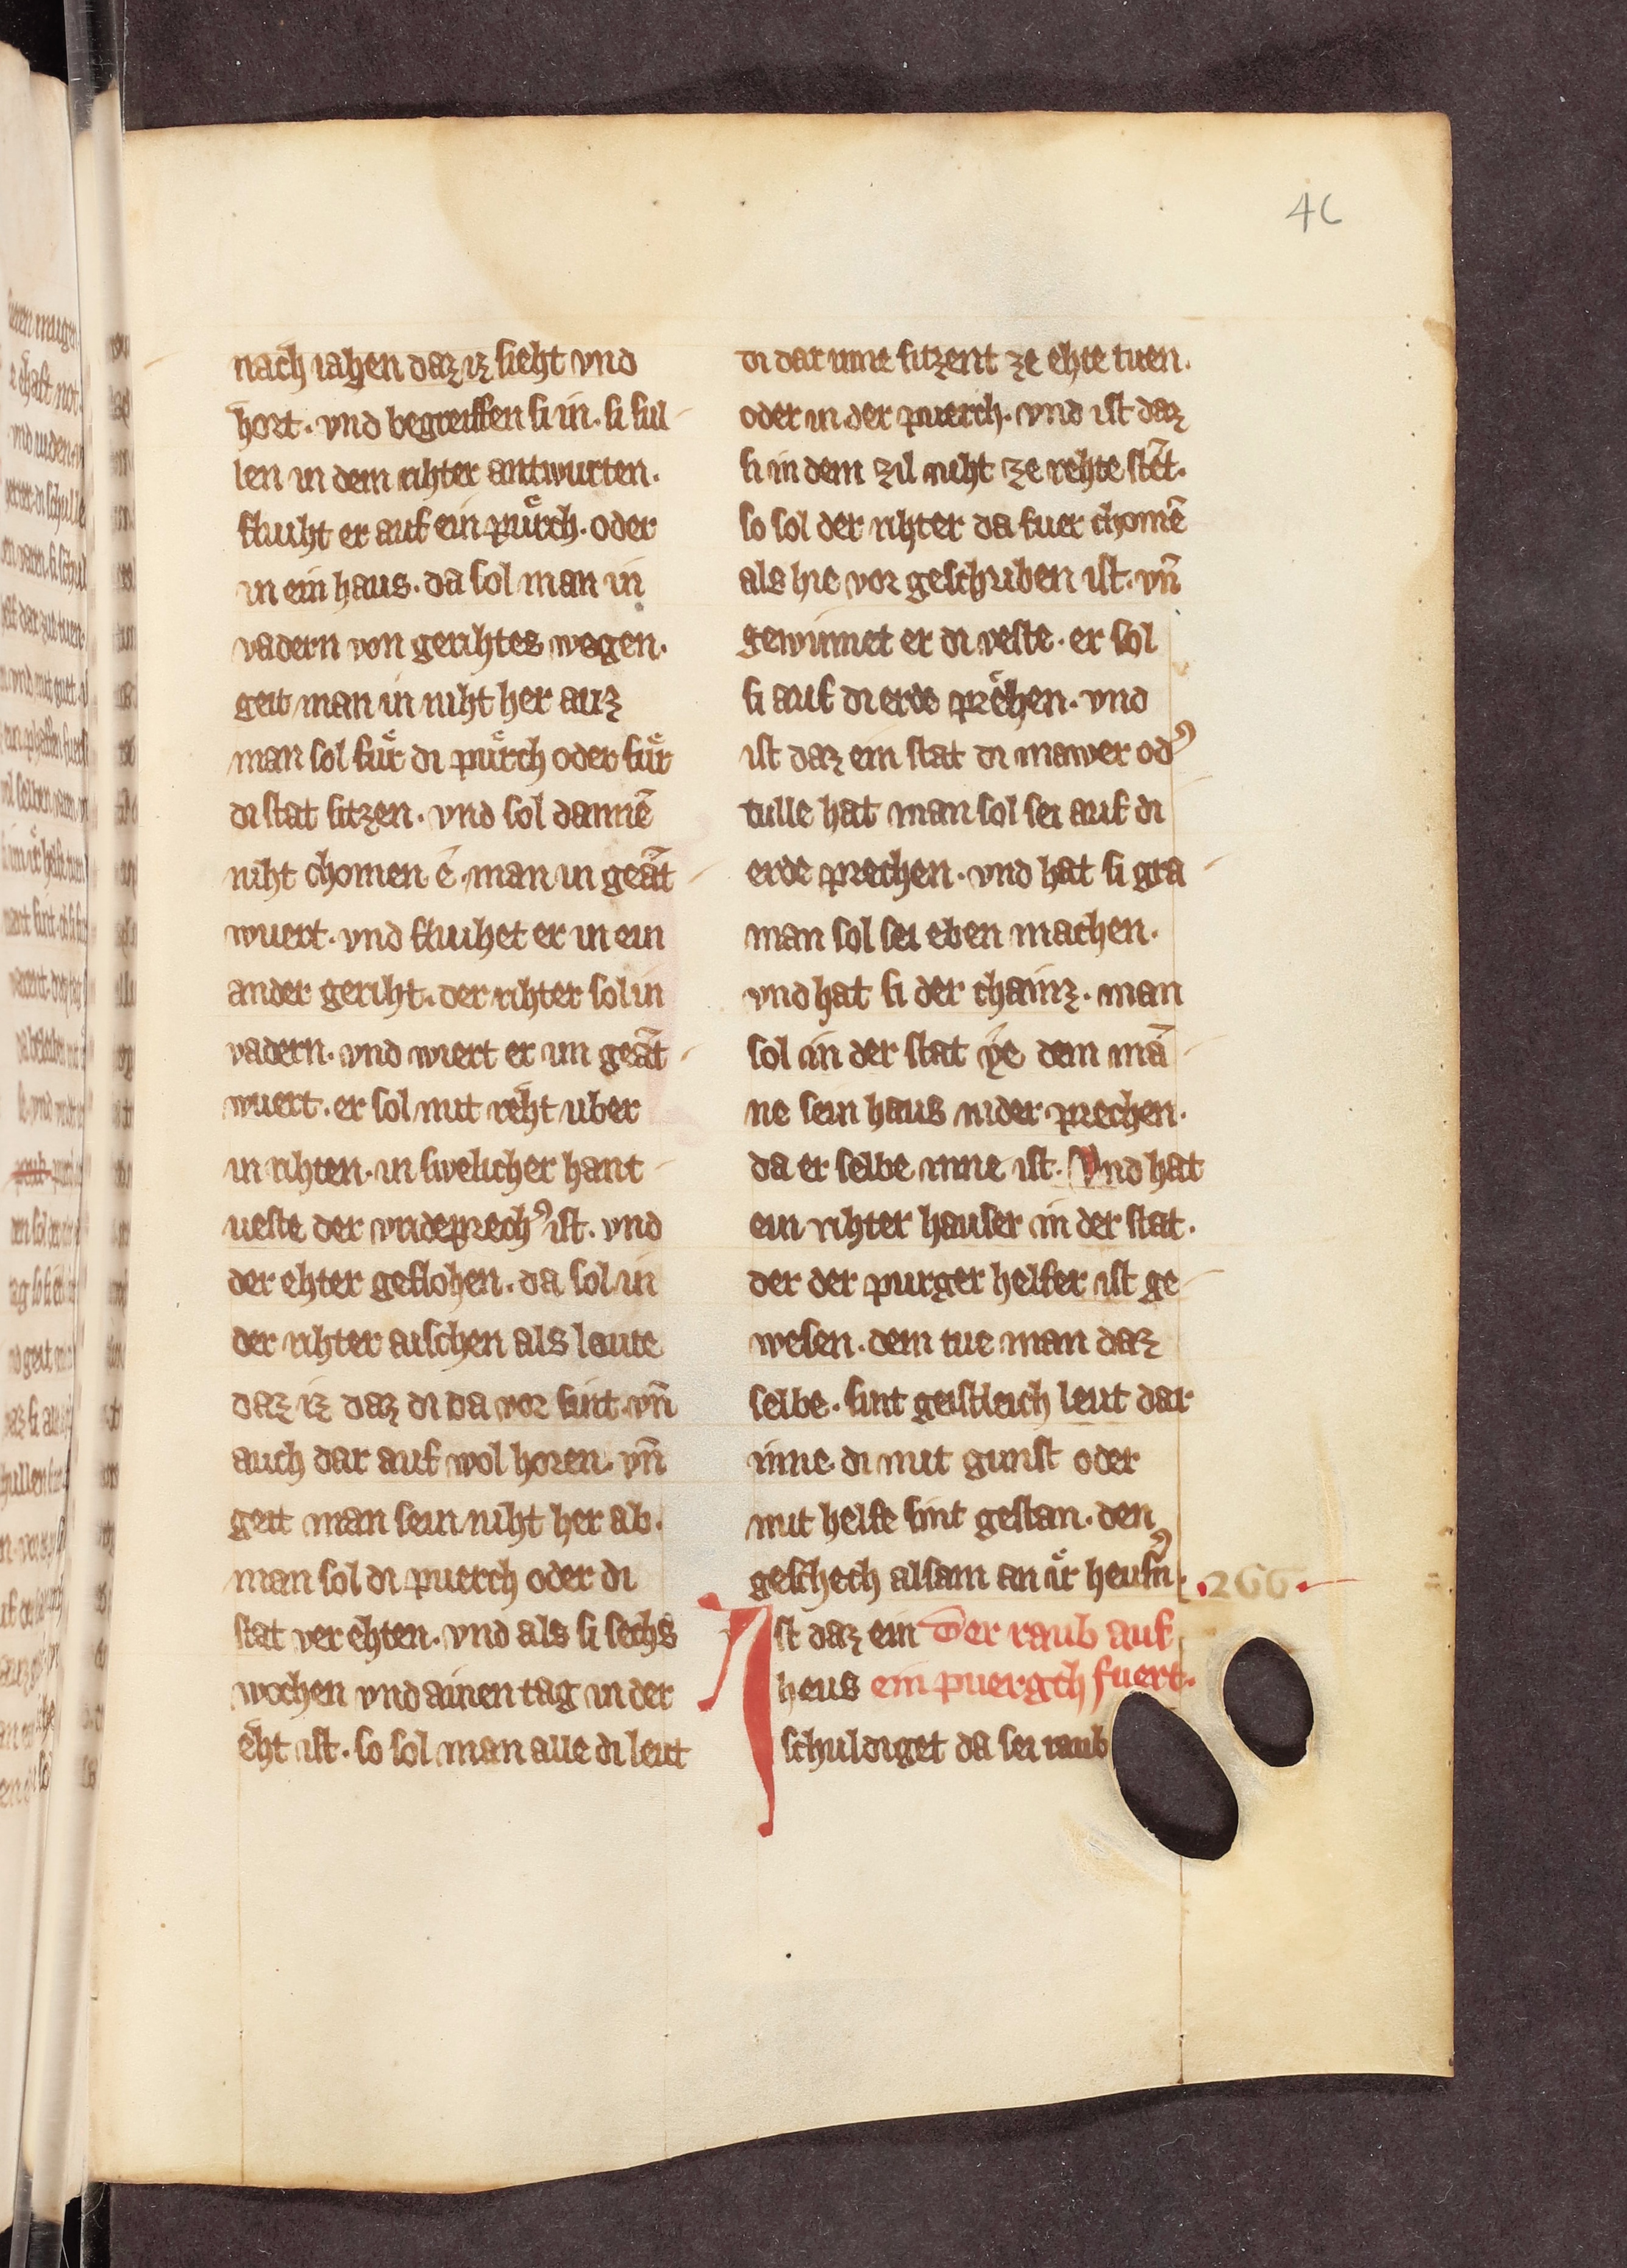 46
nach iahen daz iz sieht vnd
hort. vnd begreiffen si in. si sul
len in dem rihter antwurten.
fluiht er auf ein puͤrch. oder
in ein haus. da sol man in
vadern von gerihtes wegen.
geit man in niht her auz
man sol fuͤr di puͤrch oder fuͤr
di stat sitzen. vnd sol dannē
niht chomen e. man in geāt
wuert. vnd fluihet er in ein
ander geriht. der rihter sol in
vadern. vnd wiert er im geāt
wuert. er sol mit reht uber
in rihten. in swelicher hant
ueste der vrideprechꝰ ist. vnd
der ehter geflohen. da sol in
der rihter aischen als loute
daz iz daz di da vor sint. vn̄
auch dar auf wol horen. vn̄
geit man sein niht her ab.
man sol di puerch oder di
stat ver ehten. vnd als si sechs
wochen vnd ainen tag in der
eht ist. so sol man alle di leut
di dar inne sitzent ze ehte tuen.
oder in der puerch. vnd ist daz
si in dem zil niht ze rehte stēt.
so sol der rihter da fuer chomē
als hie vor geschriben ist. vn̄
gewinnet er di veste. er sol
si auf di erde preͤhen. vnd
ist daz ein stat di mawer odꝰ
tulle hat man sol sei auf di
erde prechen. vnd hat si gra
man sol sei eben machen.
vnd hat si der chainz. man
sol in der stat ye dem mā
ne sein haus nider prechen.
da er selbe inne ist. Vnd hat
ein rihter hauser in der stat.
der der purger helfer ist ge
wesen. dem tue man daz
selbe. sint geistleich leut dar
inne. di mit gunst oder
mit helfe sint gestan. den
geschech alsam an iͤr heusꝰn.
.266.
Ist daz ein Der raub auf
heus ein puergch fuert.
schuldiget da sei raub